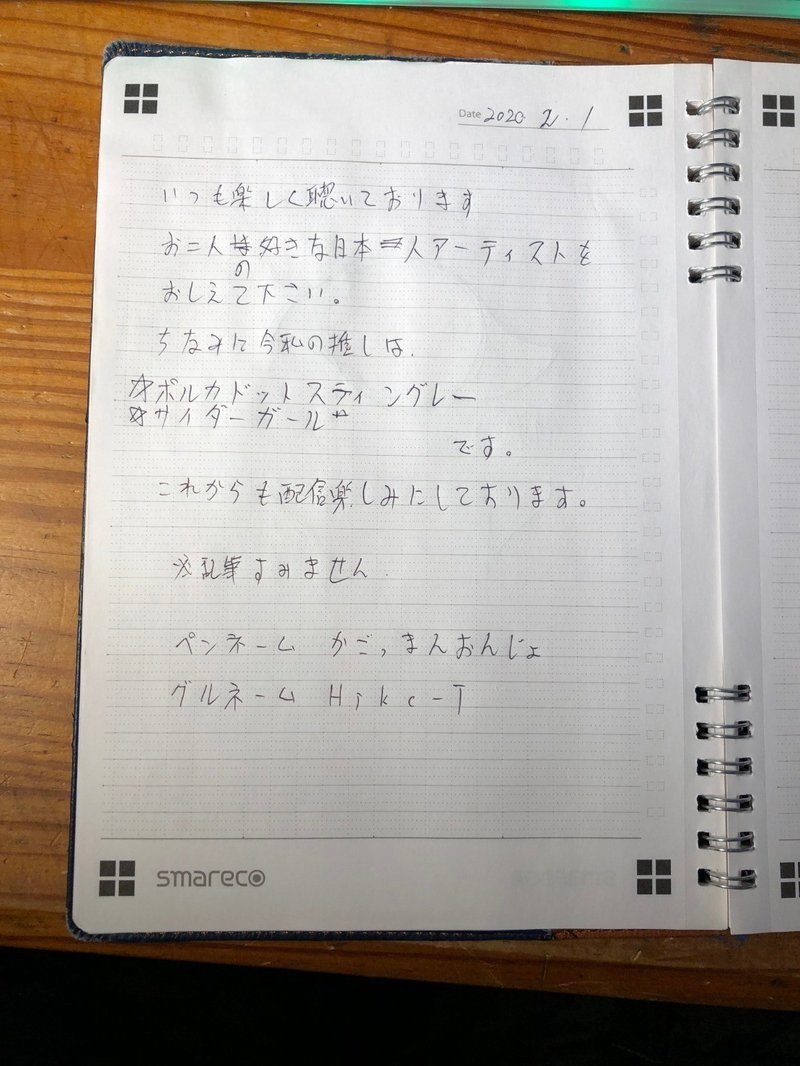 Date 2020 2.1
いつも楽しく聴いております
お二人の好きな日本人アーティストを
おしえて下さい。
ちなみに今私の推しは、
☆ポルカドットスティングレー
☆サイダーガール
です。
これからも配信楽しみにしております。
※乱筆すみません.
ペンネーム かごっまんおんじょ
グルネーム Hjkc-T
smareco